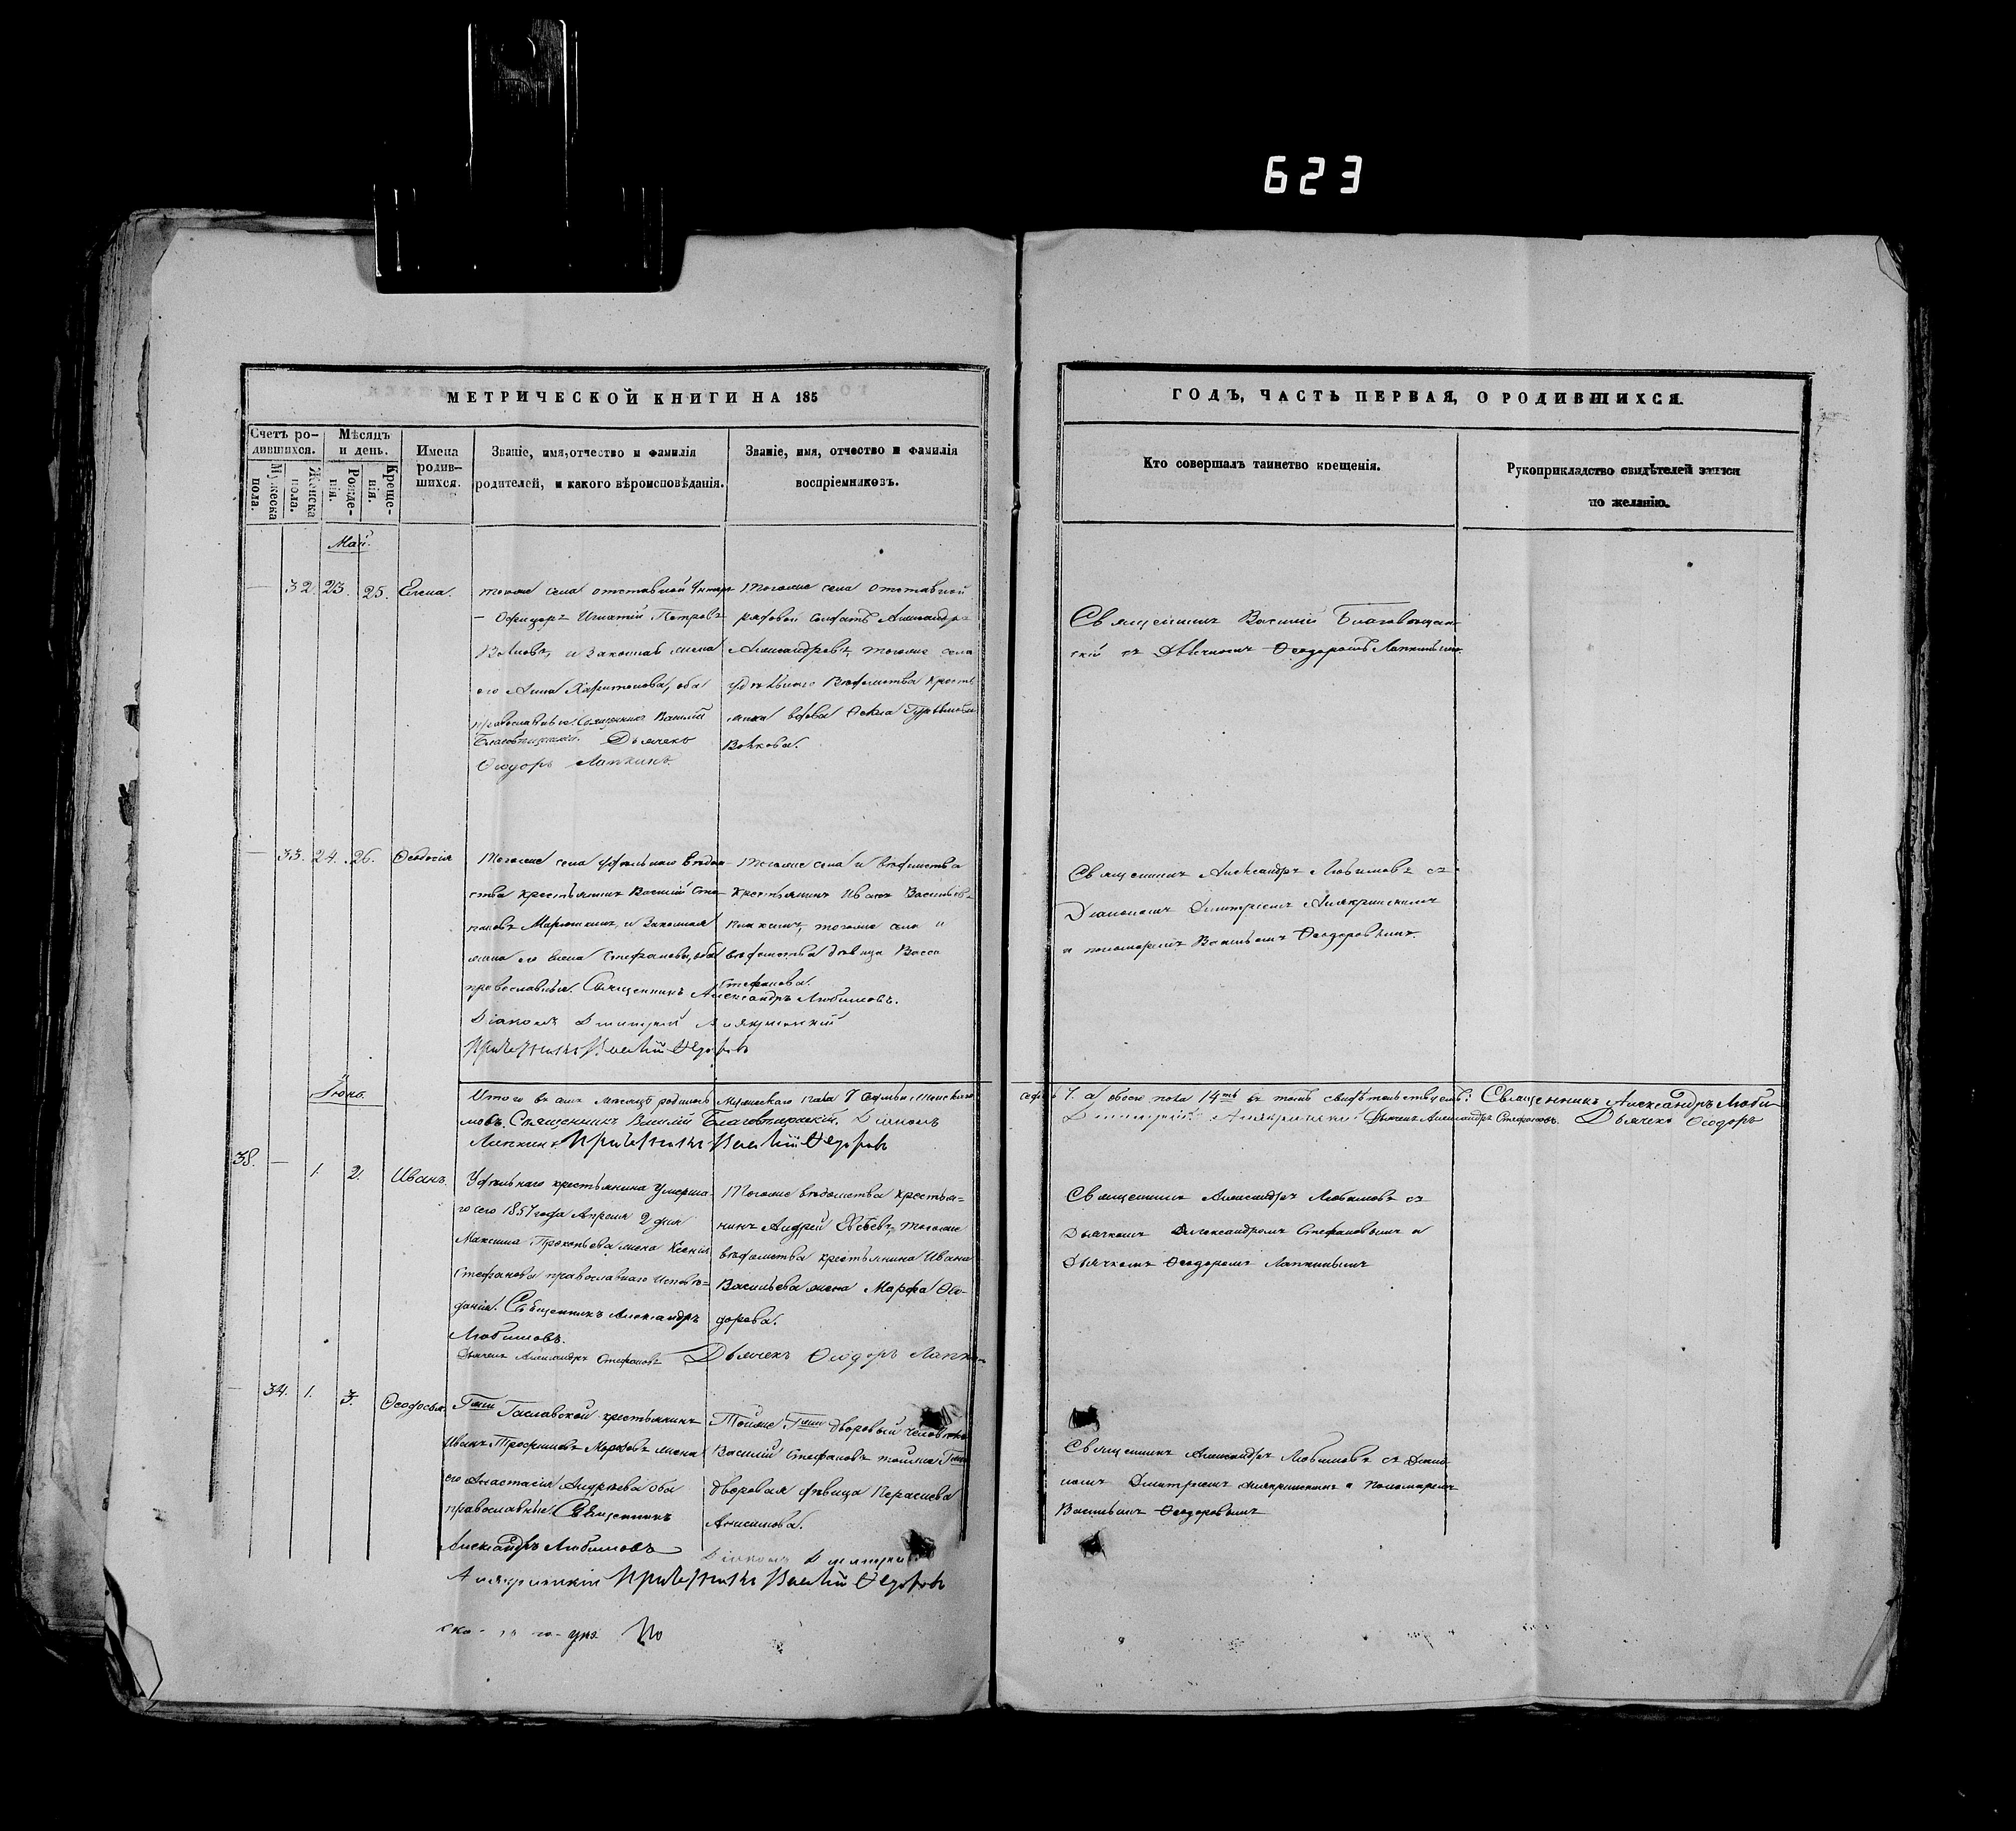 623
МЕТРИЧЕСКОЙ КНИГИ НА 185
Счетъ ро-
дившихся.
Мужеска
пола.
Женска
пола.
Мѣсяцъ
и день.
Рожде-
нія.
Креще-
нія.
Имена
родив-
шихся.
Званіе, имя, отчество и фамилія
родителей, и какого вѣроисповѣданія.
Званіе, имя, отчество и фамилія
воспріемниковъ.
Май.
— 32. 23. 25. Елена.
тогоже села отставной Унтеръ
— Офицеръ Игнатій Петровъ
и законная жена
его Анна Харитонова, оба
православные. Священникъ Василій
Благовѣщенскій. Дьячекъ
Ѳеодоръ Лапкинъ.
Тогоже села отставной
рядовой солдатъ Александръ
Александровъ, тогоже села
удѣльнаго вѣдомства крестья
вдова
Волкова.
— 33. 24. 26. Ѳеодосія
Тогоже села удѣльнаго вѣдом-
ства крестьянинъ Василій Сте-
пановъ и законная
жена его Елена Стефанова, оба
православные. Священникъ Александръ Любимовъ.
Діаконъ Димитрій
Василій Ѳедоровъ
Тогоже села и вѣдомства
крестьянинъ Иванъ Васильевъ
тогоже села и
вѣдомства дѣвица Васса
Стефанова.
Іюнь.
Итого въ маѣ мѣсяцѣ родилось мужескаго пола 7 семь и женскаго
мовъ, Священникъ Василій Благовѣщенскій, Діаконъ
Лапкинъ Василій Ѳедоровъ
38. — 1. 2. Иванъ.
Удѣльнаго крестьянина умерша-
го сего 1857 года Апрѣля 2 дня
Максима Прокопьева жена Ксенія
Стефанова православнаго исповѣ-
данія. Священникъ Александръ
Любимовъ.
Дьячекъ Александръ Стефановъ Дьячекъ Ѳеодоръ Лапкинъ
Тогоже вѣдомства крестья-
нинъ Андрей тогоже
вѣдомства крестьянина Ивана
Васильева жена Марфа Ѳео-
дорова.
— 34. 1. 3. Ѳеодосья.
Гжи крестьянинъ
Иванъ Трофимовъ жена
его Анастасія Андреева оба
православные. Священникъ
Александръ Любимовъ Діаконъ Димитрій
Василій Ѳедоровъ
Тойже Гжи дворовый человѣкъ
Василій Стефановъ тойже Гжи
дворовая дѣвица
Анисимова.
по
ГОДЪ, ЧАСТЬ ПЕРВАЯ, О РОДИВШИХСЯ.
Кто совершалъ таинство крещенія.
Рукоприкладство свидѣтелей записи
по желанію.
Священникъ Василій Благовѣщен-
скій съ Дьячкомъ Ѳеодоромъ Лапкинымъ.
Священникъ Александръ Любимовъ съ
Діакономъ Димитріемъ
и пономаремъ Васильемъ Ѳеодоровымъ.
семь 7. а обоего пола 14ть въ томъ свидѣтельствуемъ: Священникъ Александръ Люби-
Димитрій Дьячекъ Александръ Стефановъ. Дьячекъ Ѳеодоръ
Священникъ Александръ Любимовъ съ
Дьячкомъ Александромъ Стефановымъ и
Дьячкомъ Ѳеодоромъ Лапкинымъ
Священникъ Александръ Любимовъ съ Діако-
номъ Димитріемъ и Пономаремъ
Васильемъ Ѳеодоровымъ